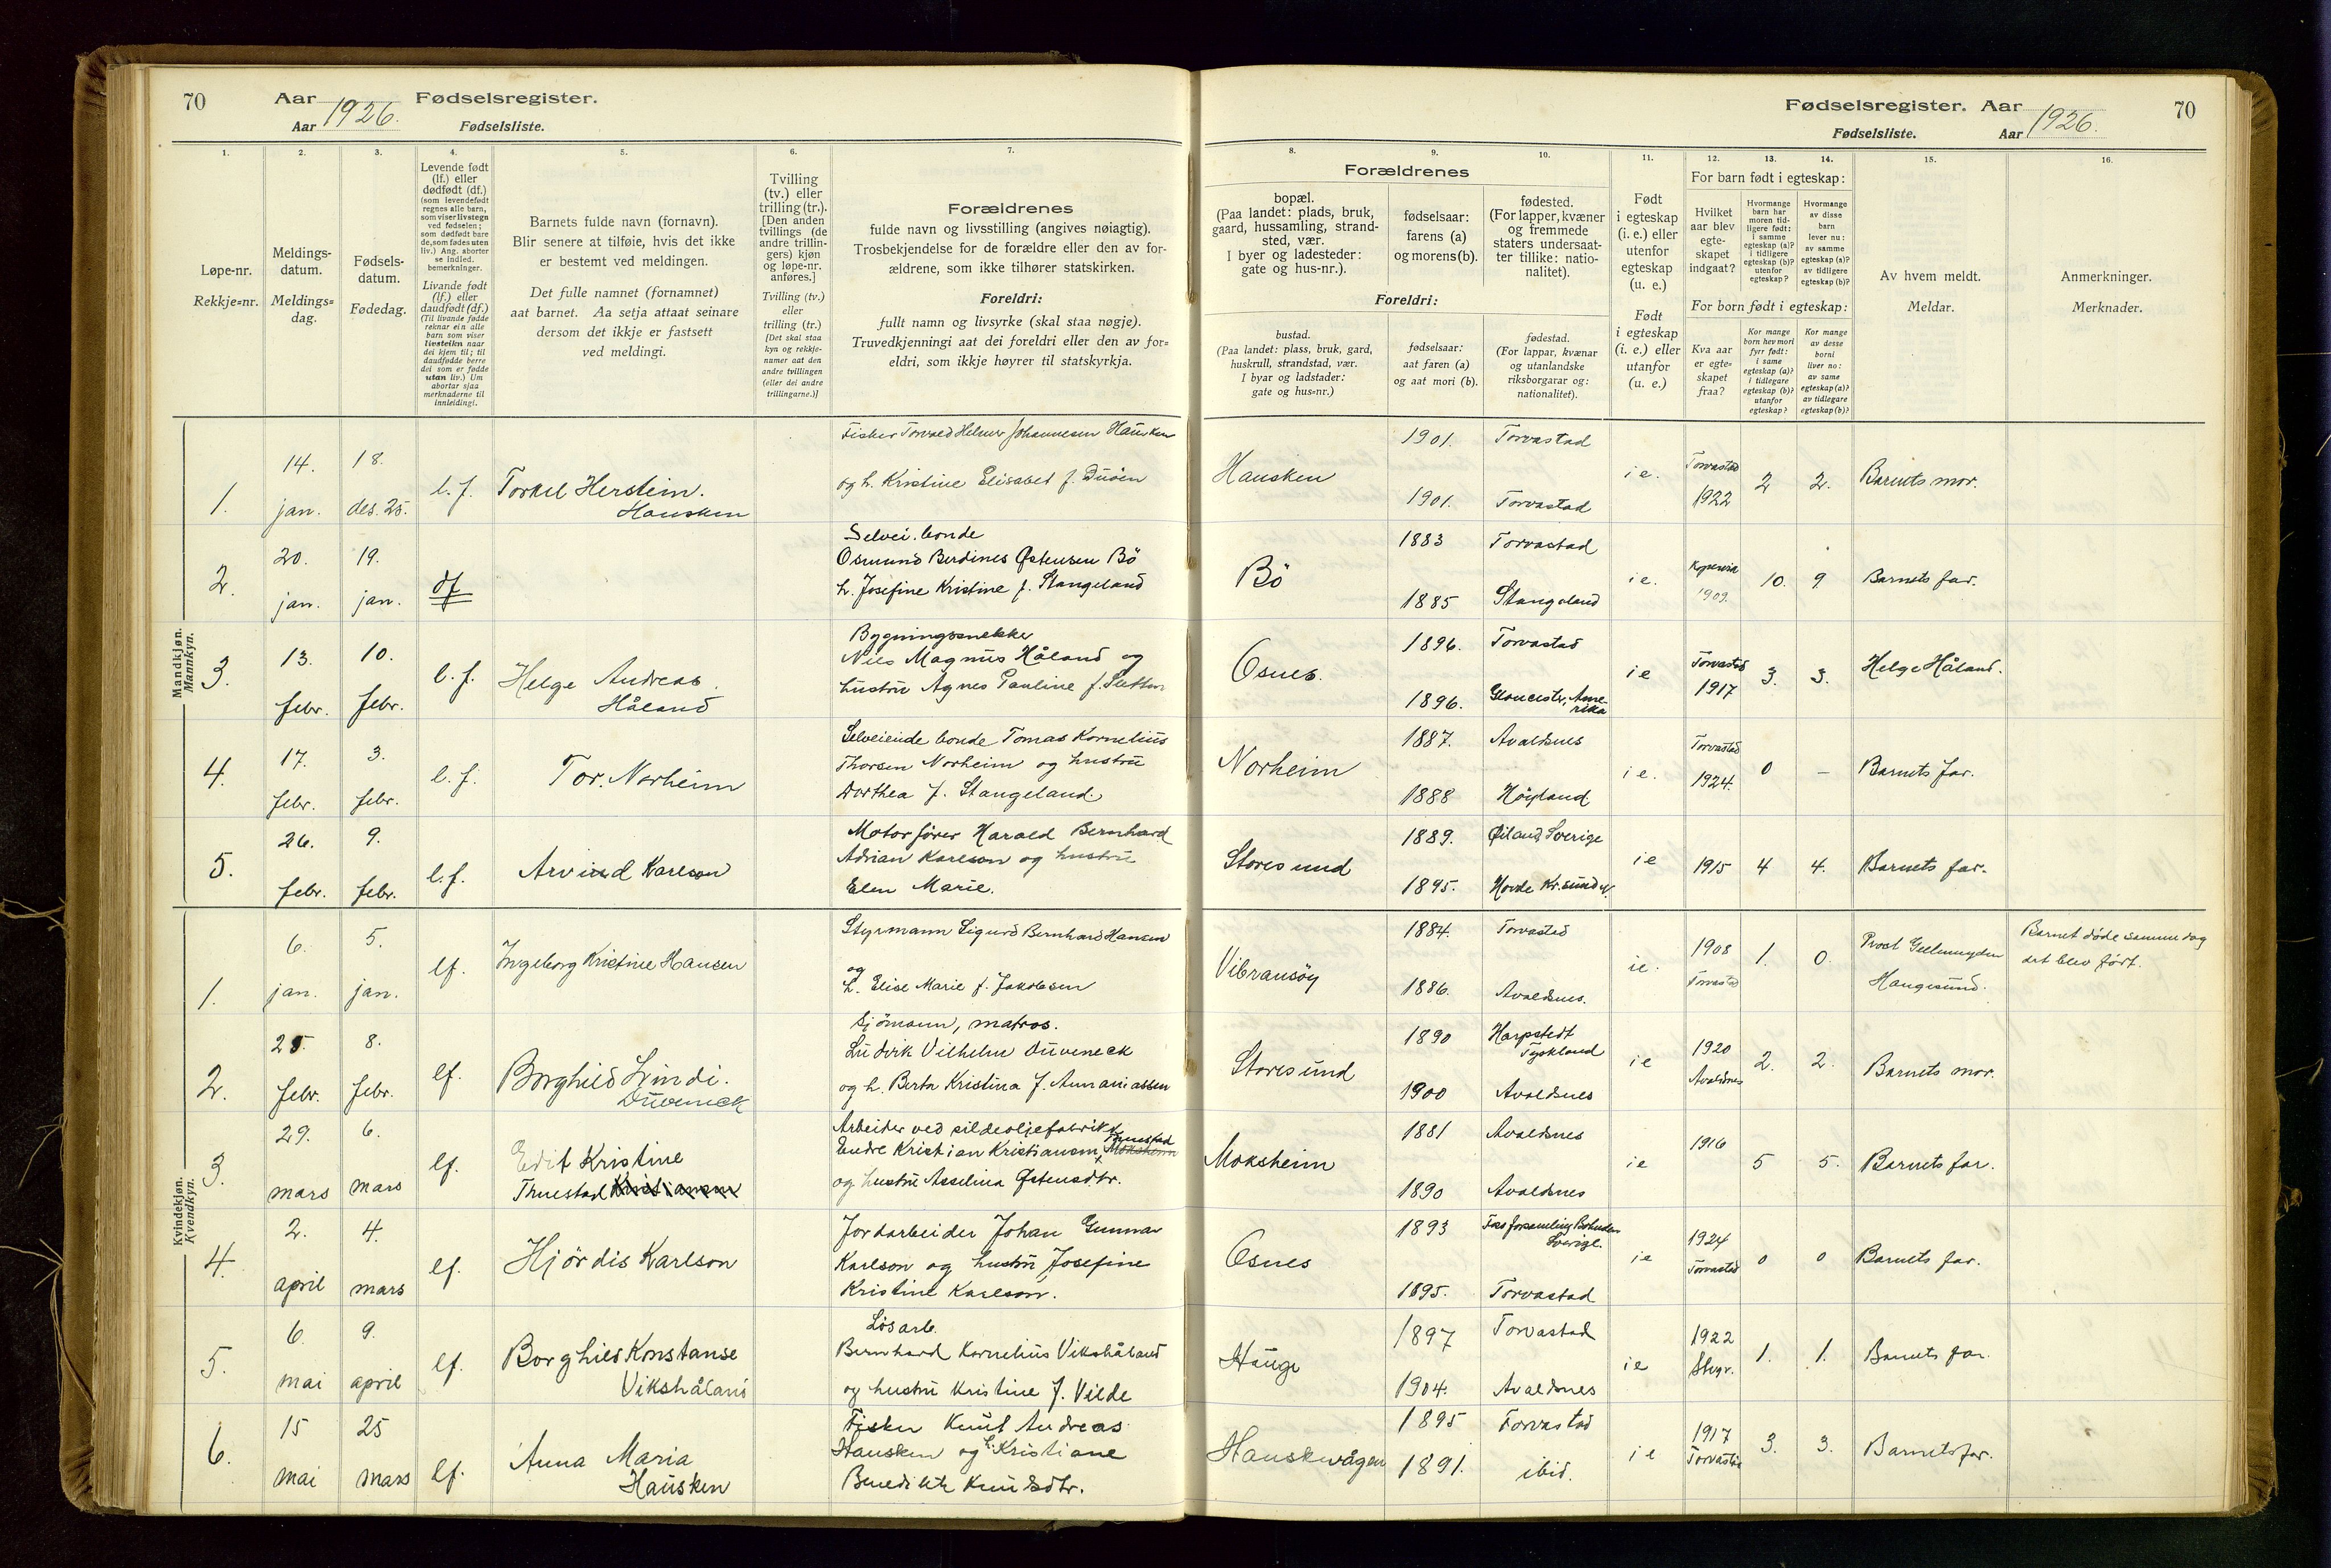 70
Aar 1926. Fødselsregister.
Aar Fødselsliste.
Fødselsregister. Aar 1926.
Fødselsliste. Aar
70
1.
2.
3.
4.
5.
6.
7.
8.
9.
10.
11.
12.
13.
14.
15.
16.
Løpe-nr.
Rekkje=nr.
Meldings-
datum.
Meldings=
dag.
Fødsels-
datum.
Fødedag.
Levende født
(lf.) eller
dødfødt (df.)
(som levendefødt
regnes alle barn,
som viser livstegn
ved fødselen;
som dødfødt bare
de, som fødes uten
liv.) Ang. aborter
se indled.
bemerkninger.
Livande født
(lf.) eller
daudfødt (df.)
(Til livande fødde
reknar ein alle
barn som viser
livsteikn naar
dei kjem til; til
daudfødde berre
dei som er fødde
utan liv.) Um
abortar sjaa
merknaderne til
innleidingi.
Barnets fulde navn (fornavn).
Blir senere at tilføie, hvis det ikke
er bestemt ved meldingen.
Det fulle namnet (fornamnet)
aat barnet. Aa setja attaat seinare
dersom det ikkje er fastsett
ved meldingi.
Tvilling
(tv.) eller
trilling (tr.).
[Den anden
tvillings (de
andre trillin-
gers) kjøn
og løpe-nr.
anføres.]
Tvilling (tv.)
eller
trilling (tr.)
[Det skal staa
kyn og rekkje-
numer aat den
andre tvillingen
(eller dei andre
trillingarne.)]
Forældrenes
fulde navn og livsstilling (angives nøiagtig).
Trosbekjendelse for de forældre eller den av for-
ældrene, som ikke tilhører statskirken.
Foreldri:
fullt namn og livsyrke (skal staa nøgje).
Truvedkjenningi aat dei foreldri eller den av for=
eldri, som ikkje høyrer til statskyrkja.
Forældrenes
bopæl.
(Paa landet: plads, bruk,
gaard, hussamling, strand-
sted, vær.
I byer og ladesteder:
gate og hus-nr.).
fødselsaar:
farens (a)
og morens (b).
fødested.
(For lapper, kvæner
og fremmede
staters undersaat-
ter tillike: natio-
nalitet).
Foreldri:
bustad.
(Paa landet: plass, bruk, gard,
huskrull, strandstad, vær.
I byar og ladstader:
gate og hus=nr.)
fødselsaar:
aat faren (a)
og aat mori (b).
fødestad.
(For lappar, kvænar
og utanlandske
riksborgarar og:
nationalitet).
Født
i egteskap
(i. e.) eller
utenfor
egteskap
(u. e.)
Født
i egteskap
(i. e.) eller
utanfor
(u. e.)
For barn født i egteskap:
Hvilket
aar blev
egte-
skapet
indgaat?
Hvormange
barn har
moren tid-
ligere født:
i samme
egteskap (a)?
i tidligere
egteskap (b)?
utenfor
egteskap?
Hvormange
av disse
barn
lever nu:
av samme
egteskap (a)?
av tidligere
egteskap (b)?
For born født i egteskap:
Kva aar
er egte-
skapet
fraa?
Kor mange
born hev mori
fyrr født:
i same
egteskap (a)?
i tidlegare
egteskap (b)?
utanfor
egteskap?
Kor mange
av desse
borni
liver no:
av same
egteskap (a)?
av tidlegare
egteskap (b)?
Av hvem meldt.
Meldar.
Anmerkninger.
Merknader.
Mandkjøn.
Mannkyn.
1. 14. jan. 18. des. 25. l. f. Torkel Herstein.
Hausken
Fisker Torvald Helmer Johannesen Hausken
og h. Kristine Elisabet f. Duöen
Hausken 1901. Torvastad
1901. Torvastad
i e. Torvastad 1922 2 2. Barnets mor.
2. 20. jan. 19. jan. df
Selvei. bonde
Osmund Berdines Østensen Bö
h. Josefine Kristine f. Stangeland
Bö 1883 Torvastad
1885 Stangeland
i e. 1909. 10. 9 Barnets far.
3. 13. febr. 10. febr. l. f. Helge Andreas.
Håland
Bygningssnekker
Nils Magnus Håland og
hustru Agnes Pauline f.
Osnes. 1896. Torvastad
1896. Gloucester, Ame-
rika
i e Torvastad 1917 3. 3. Helge Håland.
4. 17. febr. 3. febr. l. f. Tor. Norheim
Selveiende bonde Tomas Kornelius
Thorsen Norheim og hustru
Dorthea f. Stangeland.
Norheim 1887. Avaldsnes
1888 Höyland
i e. Torvastad 1924. 0 – Barnets far.
5. 26. febr. 9. febr. l. f. Arvind Karlson
Motorfører Harald Bernhard
Adrian Karlson og hustru
Elen Marie.
Storesund 1889. Øiland Sverige
1895. Hovde Kr.sund N.
i e 1915 4 4. Barnets far.
Kvindekjøn.
Kvendkyn.
1. 6. jan. 5. jan. lf. Ingeborg Kristine Hansen
Styrmann Sigurd Bernhard Hansen
og
h. Elise Marie f. Jakobsen
Vibransöy 1884. Torvastad
1886. Avaldsnes.
i e. 1908 Torvastad 1. 0. Prost Geelmuyden
Haugesund.
Barnet döde samme dag
det blev födt.
2. 25. febr. 8. febr. lf. Borghild Lindi.
Düveneck
Sjömann, matros.
Ludvik Vilhelm Düveneck
og h. Berta Kristina f. Annaniassen
Storesund 1890 Harpstedt
Tyskland
1900 Avaldsnes
i e 1920 Avaldsnes 2. 2. Barnets mor.
3. 29. mars 6. mars lf. Edit Kristine
Thuestad Kristiansen
Arbeider ved sildeoljefabrikk
Endre Kristian Kristiansen, Thuestad Moksheim
og hustru Asselina Östensdtr.
Moksheim 1881 Avaldsnes
1890 Avaldsnes
i e 1916 5 5. Barnets far.
4. 2. april 4. mars lf. Hjördis Karlson
Jordarbeider Johan Gunnar
Karlson og hustru Josefine
Kristine Karlson.
Osnes 1893 Foss forsamling Bohuslen
Sverige.
1895. Torvastad
i e 1924 Torvastad 0 0 Barnets far.
5. 6. mai 9. april lf. Borghild Konstanse
Vikshåland
Lösarb.
Bernhard Kornelius Vikshåland
og hustru Kristine f. Vilde
Hauge 1897 Torvastad
1904. Avaldsnes
i e 1922 1. 1. Barnets far.
6. 15 mai 25 mars lf. Anna Maria
Hausken
Fisker Knut Andreas
Hausken og h. Kristiane
Benedikte Knudsdtr.
Hauskevågen 1895 Torvastad
1891. ibid.
i e 1917 Torvastad 3. 3. Barnets far.